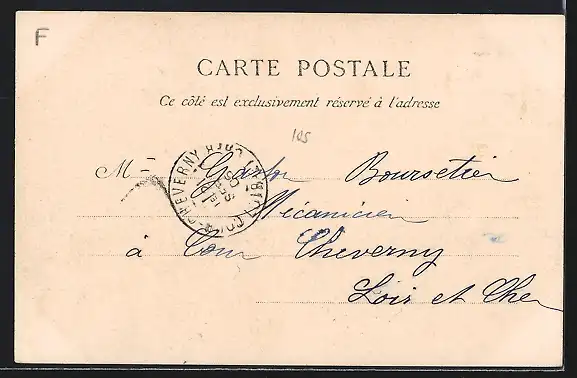 F
CARTE POSTALE
Ce côté est exclusivement réservé à l'adresse
105
M Gaston Boursetier
Mécanicien
à Cour Cheverny
Loir et Cher
CHEVERNY